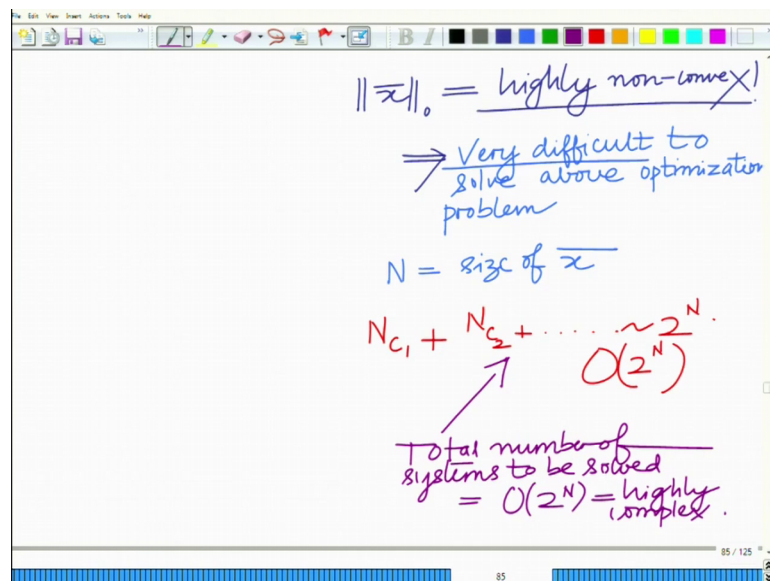 File Edit View Insert Actions Tools Help
B I
||x̅||₀ = highly non-convex!
⇒ Very difficult to
solve above optimization
problem
N = size of x̅
N_C₁ + N_C₂ + ...... ~ 2^N.
O(2^N)
Total number of
systems to be solved
= O(2^N) = highly
complex.
85 / 125
85